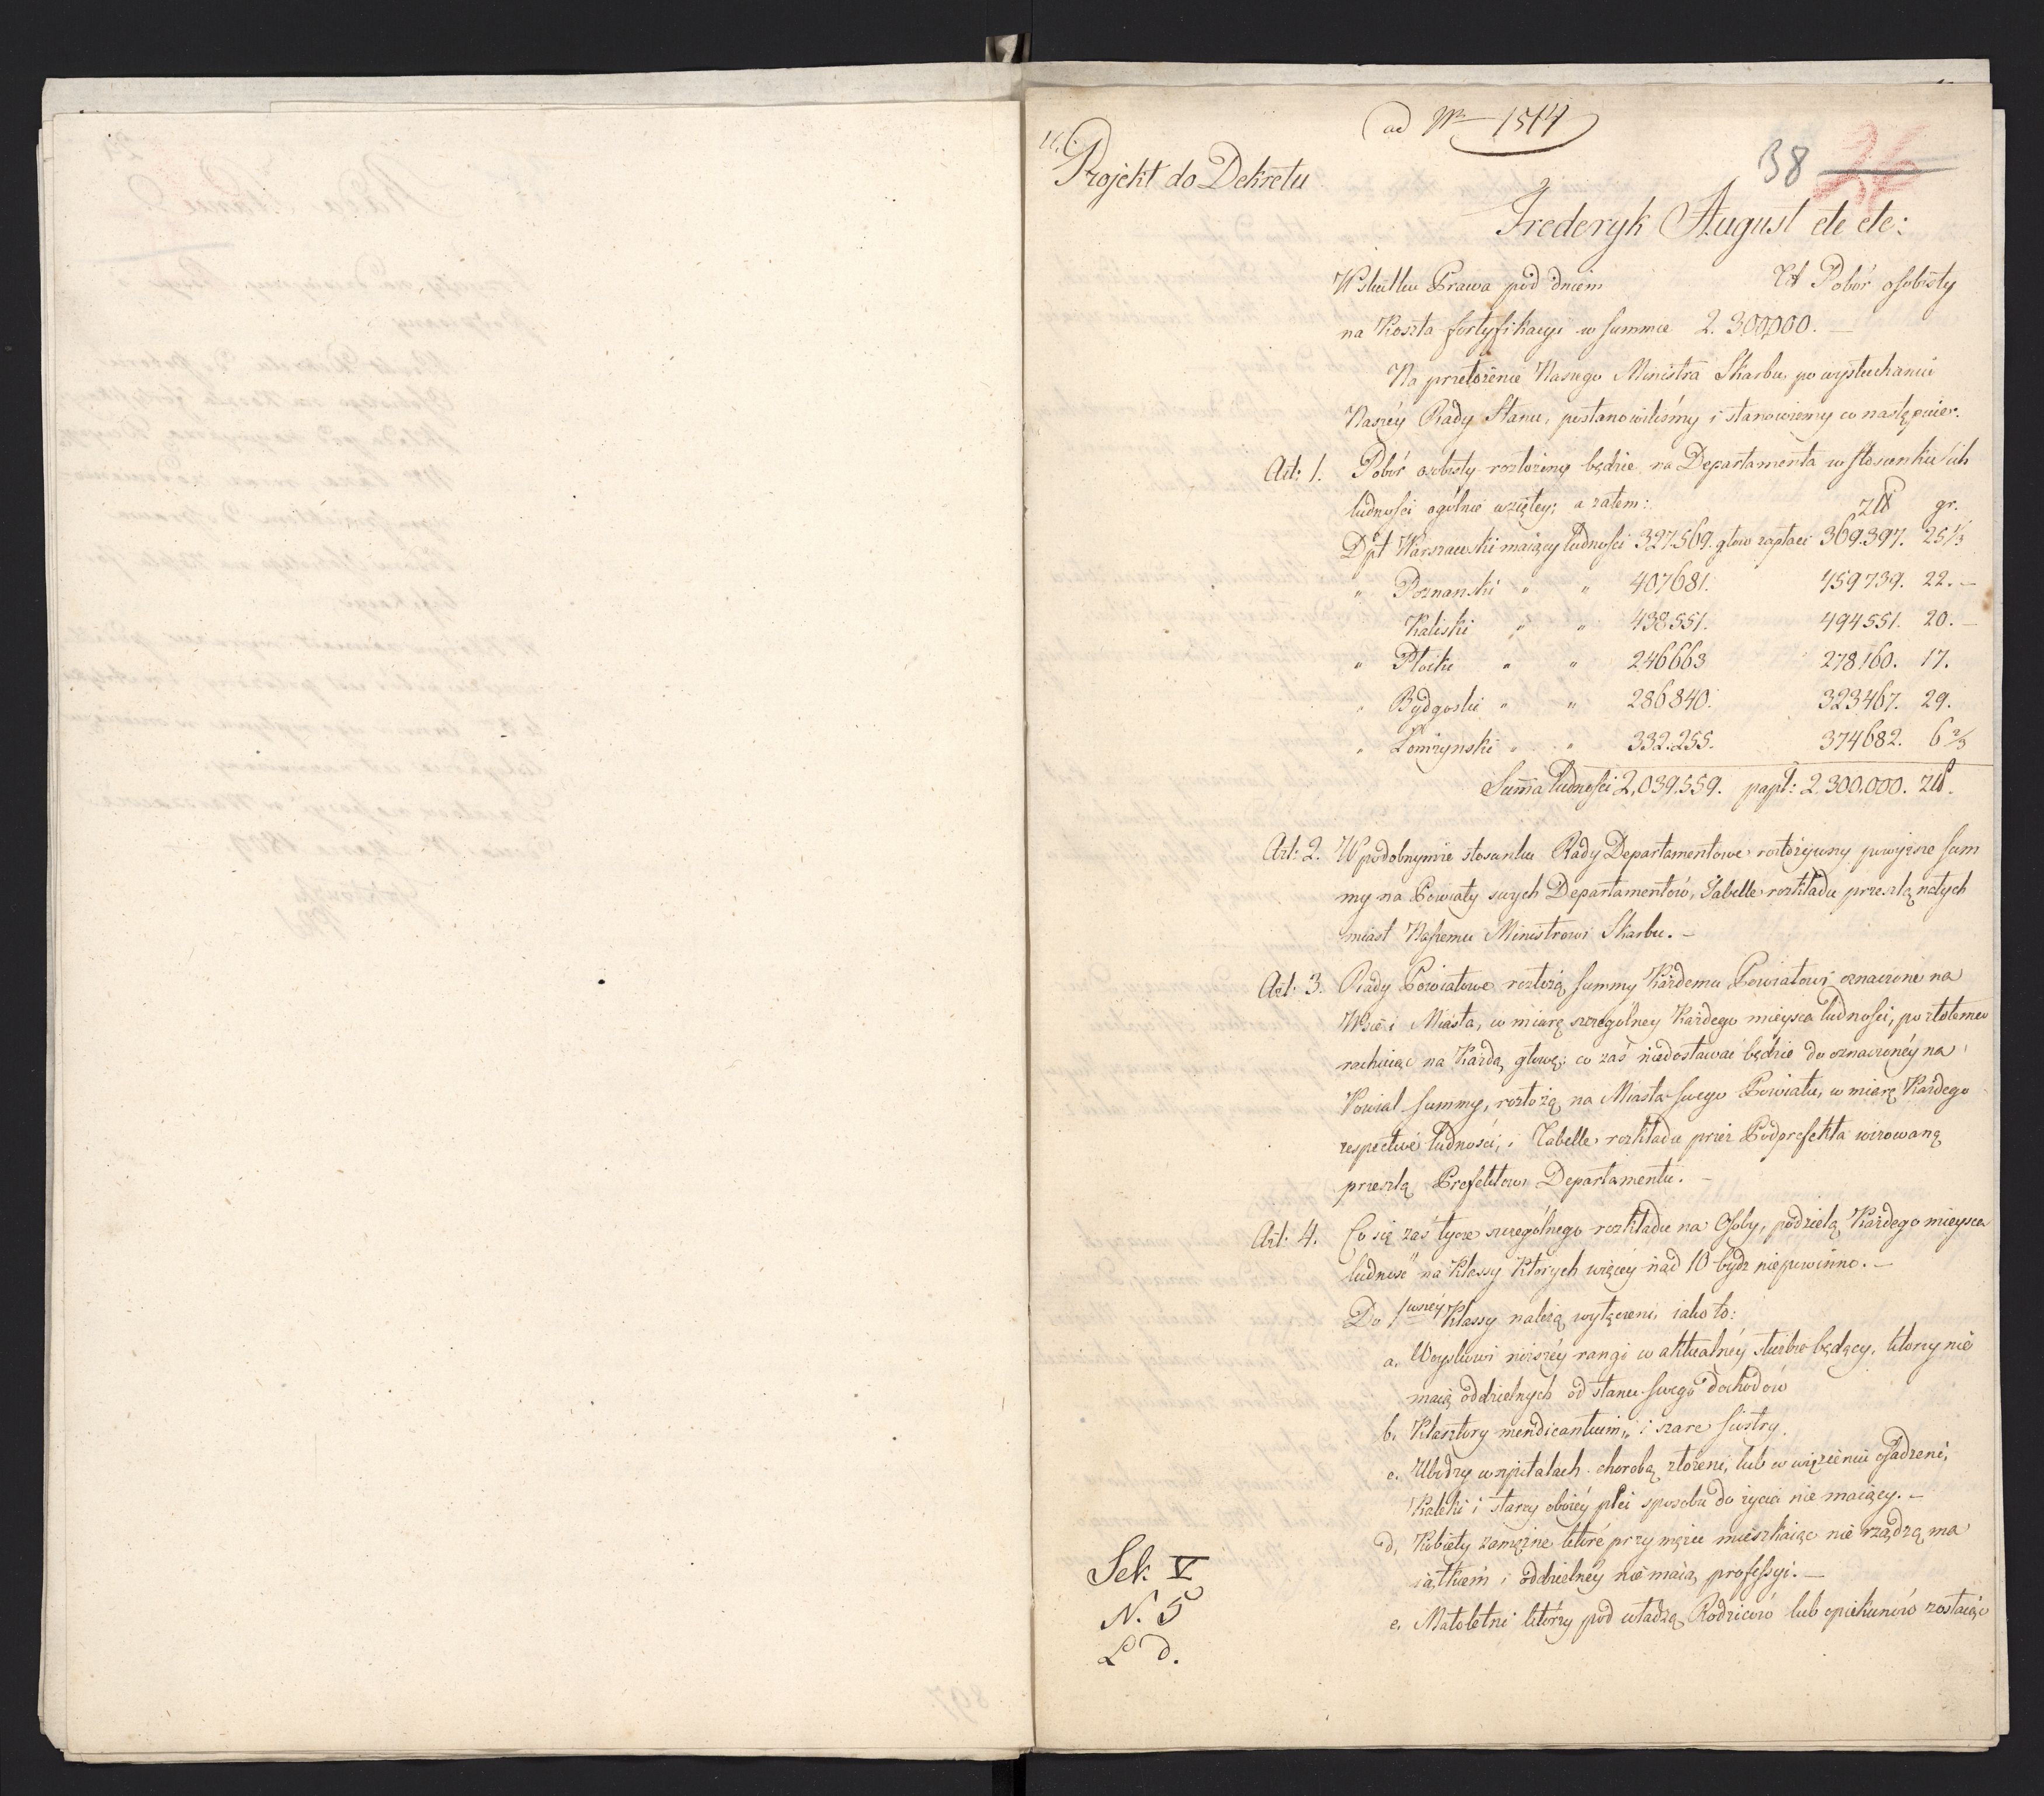 ad Nr 1514
Projekt do Dekretu
38
Frederyk August etc etc:
W skutku Prawa pod dniem Pobór osobisty
na Koszta fortyfikacyi w summie 2.300,000. —
Na przełożenie Naszego Ministra Skarbu, po wysłuchaniu
Naszéy Rady Stanu, postanowiliśmy i stanowiemy co następuie.
Art: 1. Pobór osobisty rozłożony będzie na Departamenta w stosunku ich
ludności ogólnie wziętey; a zatem: złł gr.
Dpt Warszawski maiący ludności 327.569. głow zapłaci 369.397. 25 1/3
" Poznanski " " 407681. 459739. 22. —
Kaliski " " 438.551. 494551. 20. —
" Płocki " " 246663 278.160. 17.
" Bydgoski " " 286840. 323467. 29.
" Łomżynski " " 332.255. 374682. 6 2/3
Summa ludności 2,039.559. zapł: 2.300.000. złł.
Art: 2. W podobnymże stosunku Rady Departamentowe rozłożywszy powyższe sum
my na Powiaty swych Departamentów, Tabelle rozkładu prześlą natych
miast Naszemu Ministrowi Skarbu. —
Art: 3. Rady Powiatowe rozłożą summy Każdemu Powiatowi oznaczone na
Wsie i Miasta, w miarę szczególney Każdego mieysca ludności, po złotemu
rachuiąc na Każdą głowę; co zaś niedostawać będzie do oznaczonéy na
Powiat summy, rozłożą na Miasta swego Powiatu, w miarę Każdego
respective ludności, i Tabelle rozkładu przez Podprefekta wizowaną
prześlą Prefektowi Departamentu. —
Art: 4. Co się zaś tycze szczególnego rozkładu na Osoby, podzielą Każdego mieysca
ludność na Klassy Których więcéy nad 10 bydź niepowinno. —
Do 1wszéy Klassy należą wyłączeni, iako to:
a. Woyskowi niższéy rangi w aktualnéy służbie będący, którzy nie
maią oddzielnych od stanu swego dochodów
b. Klasztory mendicantium, i szare siostry.
c. Ubodzy w szpitalach chorobą złożeni, lub w więzieniu osadzeni,
Kaleki i starzy oboiéy płci sposobu do życia nie maiący. —
d. Kobiety zamężne które przy mężu mieszkaiąc nie rządzą ma
iątkiem i oddzielnéy nie maią professyi. —
e. Małoletni którzy pod władzą Rodziców lub opiekunów zostaiąc
Sek. V
N. 5
L d.